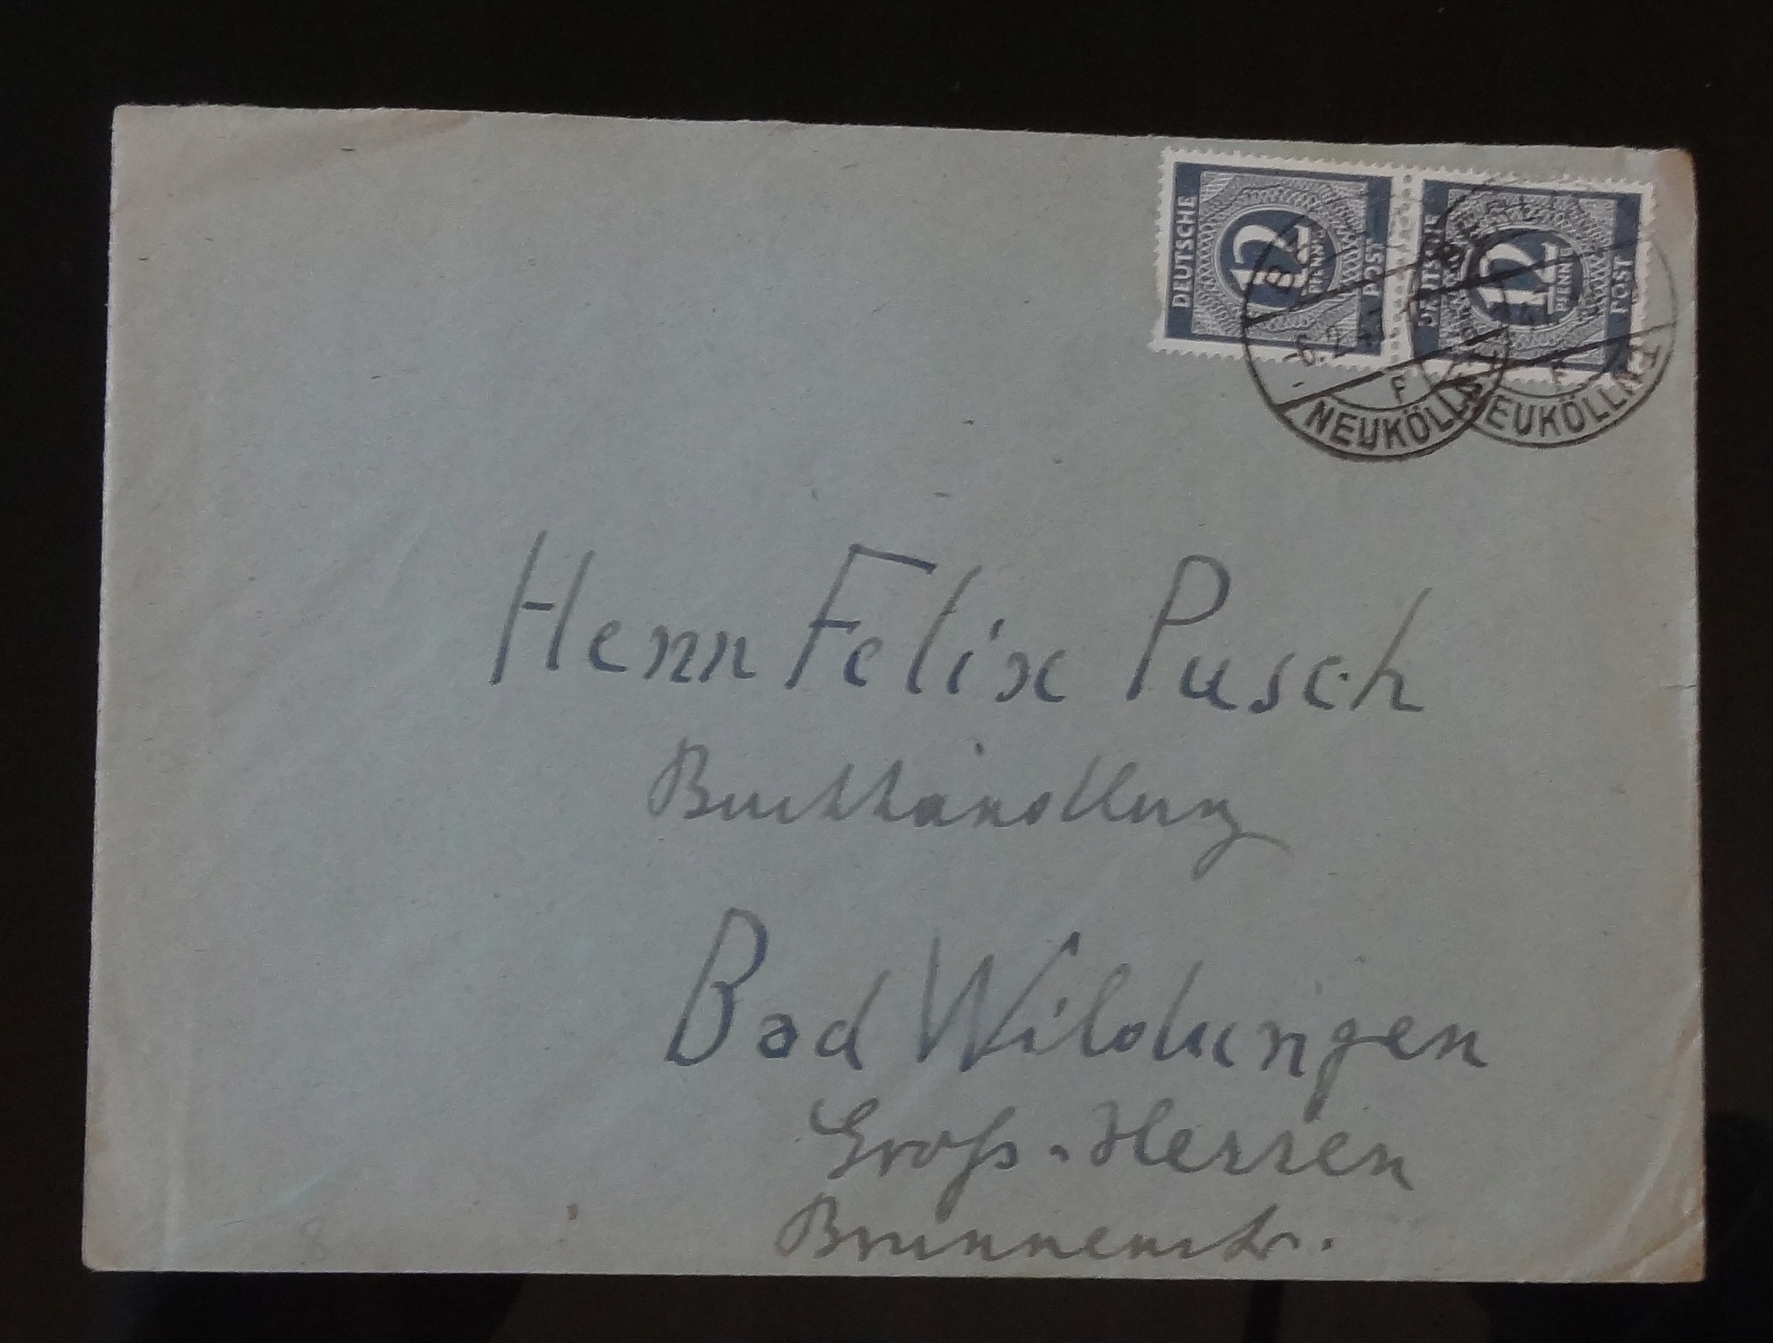 DEUTSCHE 12 PFENNIG POST
DEUTSCHE 12 PFENNIG POST
F
NEUKÖLLN
NEUKÖLLN
Herrn Felix Pusch
Buchhandlung
Bad Wildungen
Groß-Herren
Brunnenstr.
8